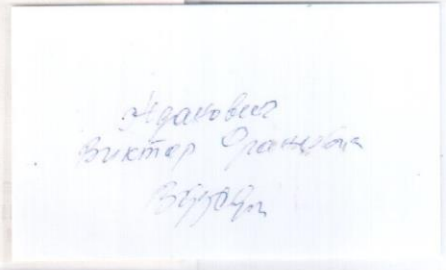 Жданович
Виктор Францевич